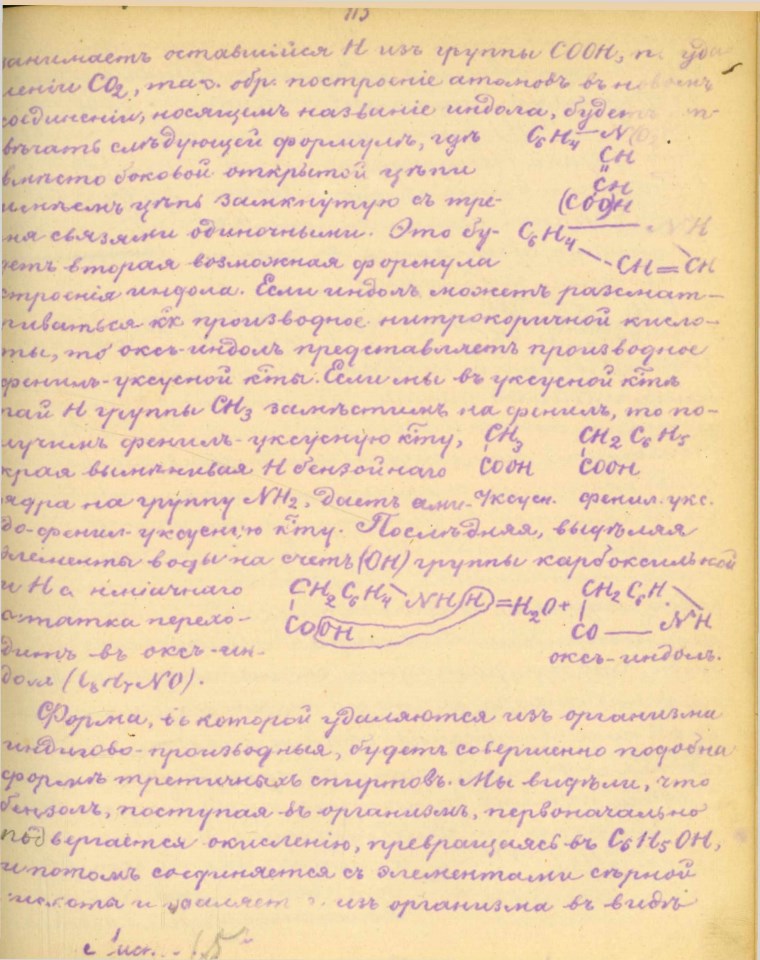 113
занимаетъ оставшійся Н изъ группы COOH, по уда-
леніи CO2, так. обр. построеніе атомовъ въ новомъ
соединеніи, носящемъ названіе индола, будетъ
вѣчать слѣдующей формулѣ, гдѣ C6H4 — NO2
вмѣсто боковой открытой цѣпи CH
имѣемъ цѣпь замкнутую съ тре- CH
мя связями одиночными. Это бу- (COO)H
C6H4 NH
детъ вторая возможная формула CH=CH
строенія индола. Если индолъ можетъ разсмат-
риваться кк производное нитрокоричной кисло-
ты, то оксъ-индолъ представляетъ производное
фенилъ-уксусной кты. Если мы въ уксусной ктѣ
пай Н группы CH3 замѣстимъ на фенилъ, то по-
лучимъ фенилъ-уксусную кту, CH3 CH2 C6H5
края вымѣнивая Н бензойнаго COOH COOH
ядра на группу NH2, даетъ ами- Уксусн. фенил. укс.
до-фенил-уксусную кту. Послѣдняя, выдѣляя
элементы воды на счетъ (OH) группы карбоксильной
и Н амміачнаго CH2 C6H4 NHH = H2O + CH2 C6H
остатка перехо- COOH CO — NH
дитъ въ оксъ-ин- оксъ-индолъ.
долъ (C8H7NO).
Форма, въ которой удаляются изъ организма
индигово-производныя, будетъ совершенно подобна
формѣ третичныхъ спиртовъ. Мы видѣли, что
бензолъ, поступая въ организмъ, первоначально
подвергается окисленію, превращаясь въ C6H5OH,
и потомъ соединяется съ элементами сѣрной
кислоты и удаляется изъ организма въ видѣ